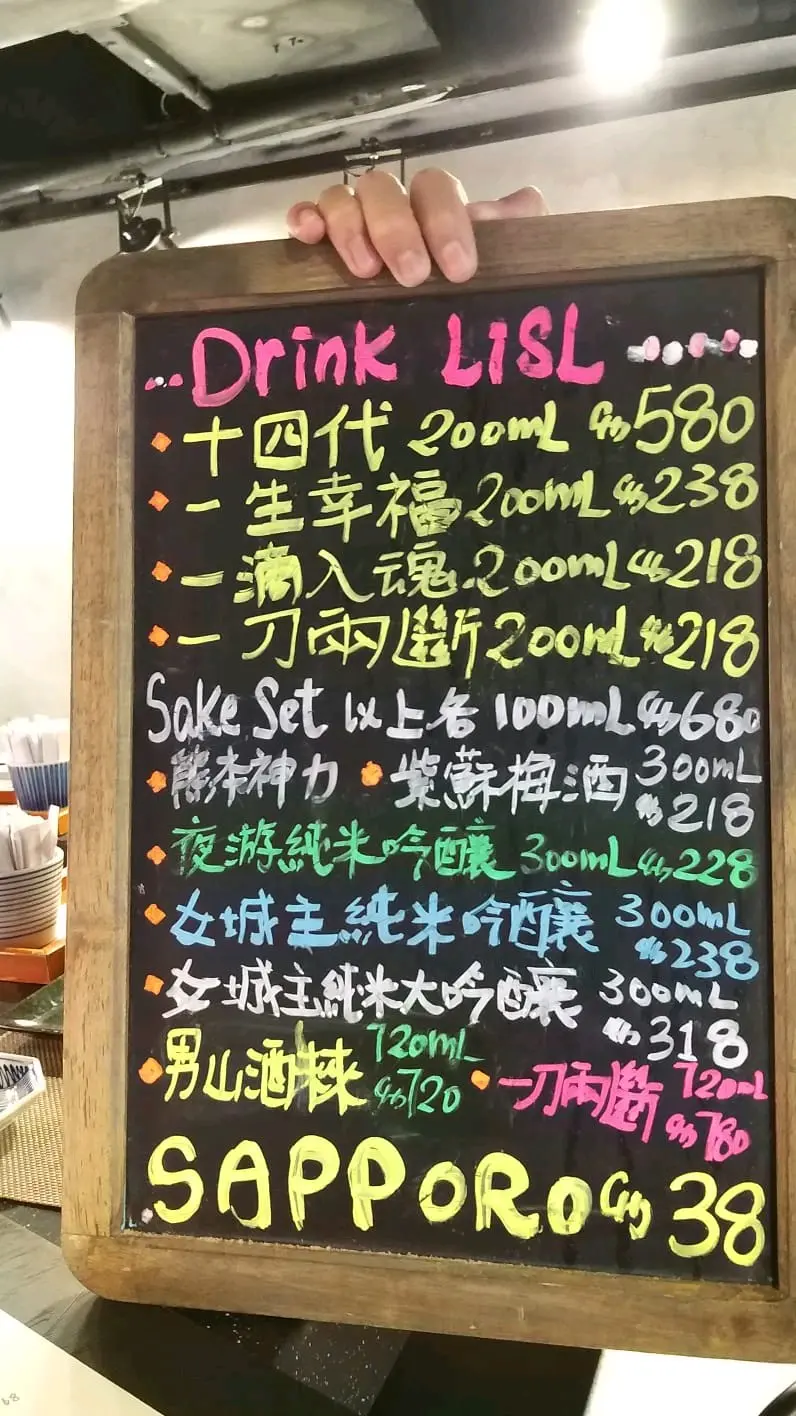 Drink LiSL
十四代 200mL 580
一生幸福 200mL 238
一滴入魂 200mL 218
一刀兩斷 200mL 218
Sake Set 以上各 100mL 680
熊本神力 紫蘇梅酒 300mL 218
夜游純米吟釀 300mL 228
女城主純米吟釀 300mL 238
女城主純米大吟釀 300mL 318
男山酒 720mL 720 一刀兩斷 720mL 780
SAPPORO 38
68